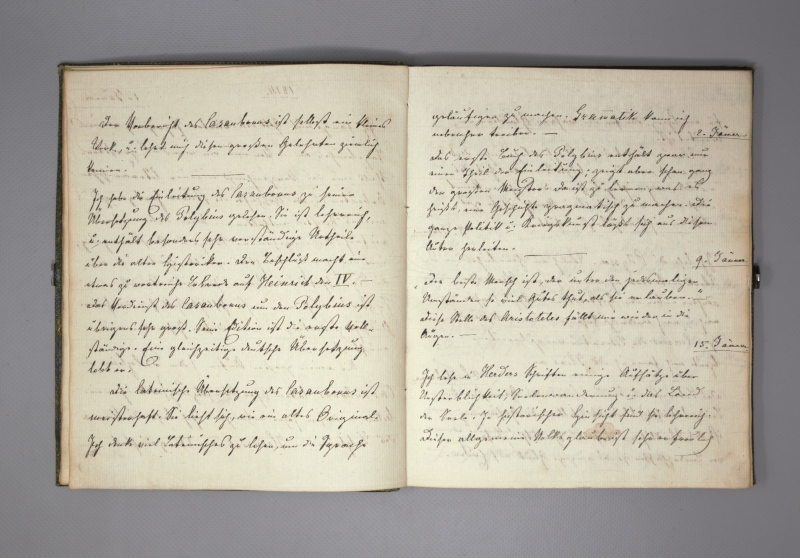 1814.
Der Vorbericht des Casaubonus ist selbst ein kleines
Werk, u. lehrt mich diesen großen Gelehrten ziemlich
kennen.
Ich habe die Einleitung des Casaubonus zu seiner
Übersetzung des Polybius gelesen. Sie ist lehrreich,
u. enthält besonders sehr verständige Urtheile
über die alten Historiker. Den Beschluß macht ein
etwas zu Lobrede auf Heinrich den IV. —
Das Verdienst des Casaubonus um den Polybius ist
übrigens sehr groß. Seine Edition ist die erste voll-
ständige. Eine gleichzeitige deutsche Übersetzung
lobt er.
Die lateinische Übersetzung des Casaubonus ist
meisterhaft. Sie liest sich, wie ein altes Original.
Ich denke viel Lateinisches zu lesen, um die Sprache
geläufiger zu machen. Grammatik kann ich
nebenher treiben. —
8. Jänner
Das erste Buch des Polybius enthält zwar nur
einen Theil der Einleitung, zeigt aber schon ganz
den großen Meister. Da ist zu lernen, was es
heißt, eine Geschichte pragmatisch zu machen. Die
ganze Politik u. Kriegskunst läßt sich aus diesem
Autor herleiten.
9. Jänner
"Der beste Mensch ist, der unter den jedesmaligen
Umständen so viel Gutes thut, als sie erlauben."
Diese Stelle des Aristoteles fällt mir wieder in die
Augen. —
15. Jänner
Ich lese in Herders Schriften einige Aufsätze über
Unsterblichkeit, Seelenwanderung u. das Land
der Seelen. In historischer Hinsicht sind sie lehrreich.
Dieser allgemeine Volksglaube ist sehr erfreulich